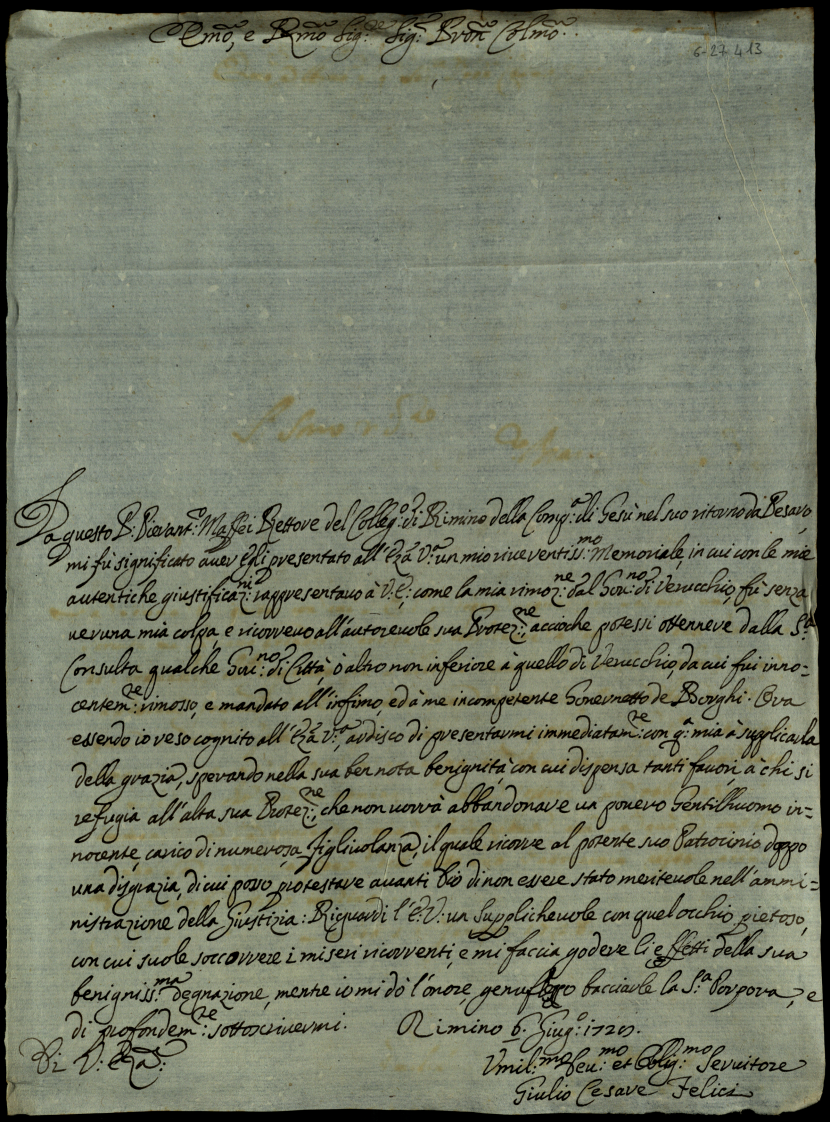 Emo, e Rmo Sig.r Sig.r Pron Colmo
6-27 4 13
Da questo P: Pierant.o Maffei Rettore del Colleg:o di Rimino della Comp:a di Gesù nel suo ritorno da Pesaro,
mi fù significato aver Egli presentato all'Eza V.a un mio riverentiss:mo Memoriale, in cui con le mie
autentiche giustificaz:ni rappresentavo à V: E:, come la mia rimoz:ne dal Gov:no di Verucchio, fù senza
veruna mia colpa, e ricorrevo all'autorevole sua Protez:ne, accioche potessi ottennere dalla S:a
Consulta qualche Gov:no di Città, ò altro non inferiore à quello di Verucchio, da cui fui inno=
centem:te rimosso, e mandato all'infimo, ed à me incompetente Governetto de Borghi. Ora
essendo io reso cognito all'Eza V:a, ardisco di presentarmi immediatam:te con q:a mia à supplicarla
della grazia, sperando nella sua ben nota benignità, con cui dispensa tanti favori, à chi si
refugia all'alta sua Protez:ne, che non vorrà abbandonare un povero Gentilhuomo in=
nocente, carico di numerosa figliuolanza, il quale ricorre al potente suo Patrocinio doppo
una disgrazia, di cui posso protestare avanti Dio di non essere stato meritevole nell'ammi=
nistrazione della Giustizia: Riguardi l'E: V: un Supplichevole con quel occhio pietoso,
con cui suole soccorrere i miseri ricorrenti, e mi faccia godere li effetti della sua
benigniss:ma degnazione, mentre io mi dò l'onore, genuflesso bacciarle la S:a Porpora, e
di profondem:te sottoscrivermi. Rimino 6: Giug:o 1727.
Di V: Eza:
Umil:mo Dev:mo et Oblig:mo Servitore
Giulio Cesare Felici